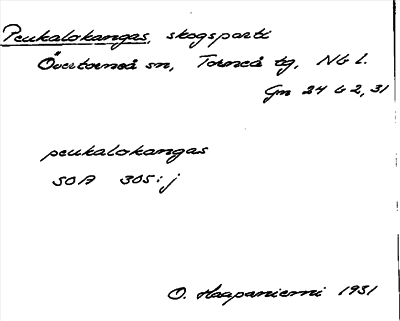 Peukalokangas, skogsparti
Övertorneå sn, Torneå tg, Nb l.
Gm 24 G 2, 31
peukalokangas
SOA 305: j
O. Haapaniemi 1931